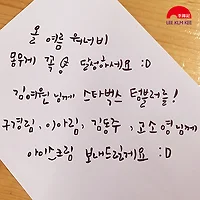 李錦記
LEE KUM KEE
올 여름 워너비
몸무게 꼭 달성하세요 :D
김여원 님께 스타벅스 텀블러를!
구경림, 이아림, 김동주, 고소영 님께
아이스크림 보내드릴게요 :D